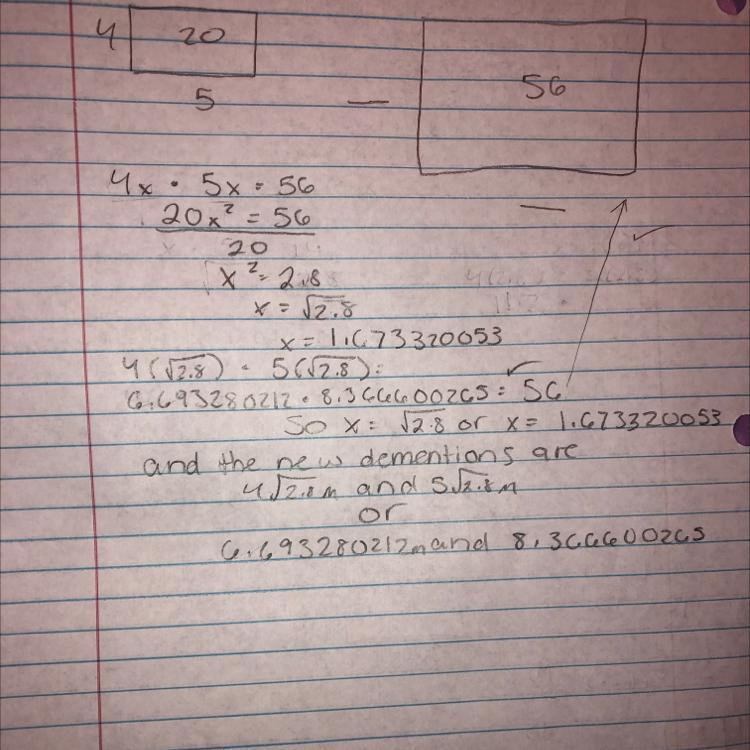 4 20
5
56
4x · 5x = 56
20x² = 56
20
x² = 2.8
x = √2.8
x = 1.673320053
4(√2.8) · 5(√2.8) =
6.693280212 · 8.366600265 = 56
So x = √2.8 or x = 1.673320053
and the new dementions are
4√2.8 m and 5√2.8 m
or
6.693280212m and 8.366600265